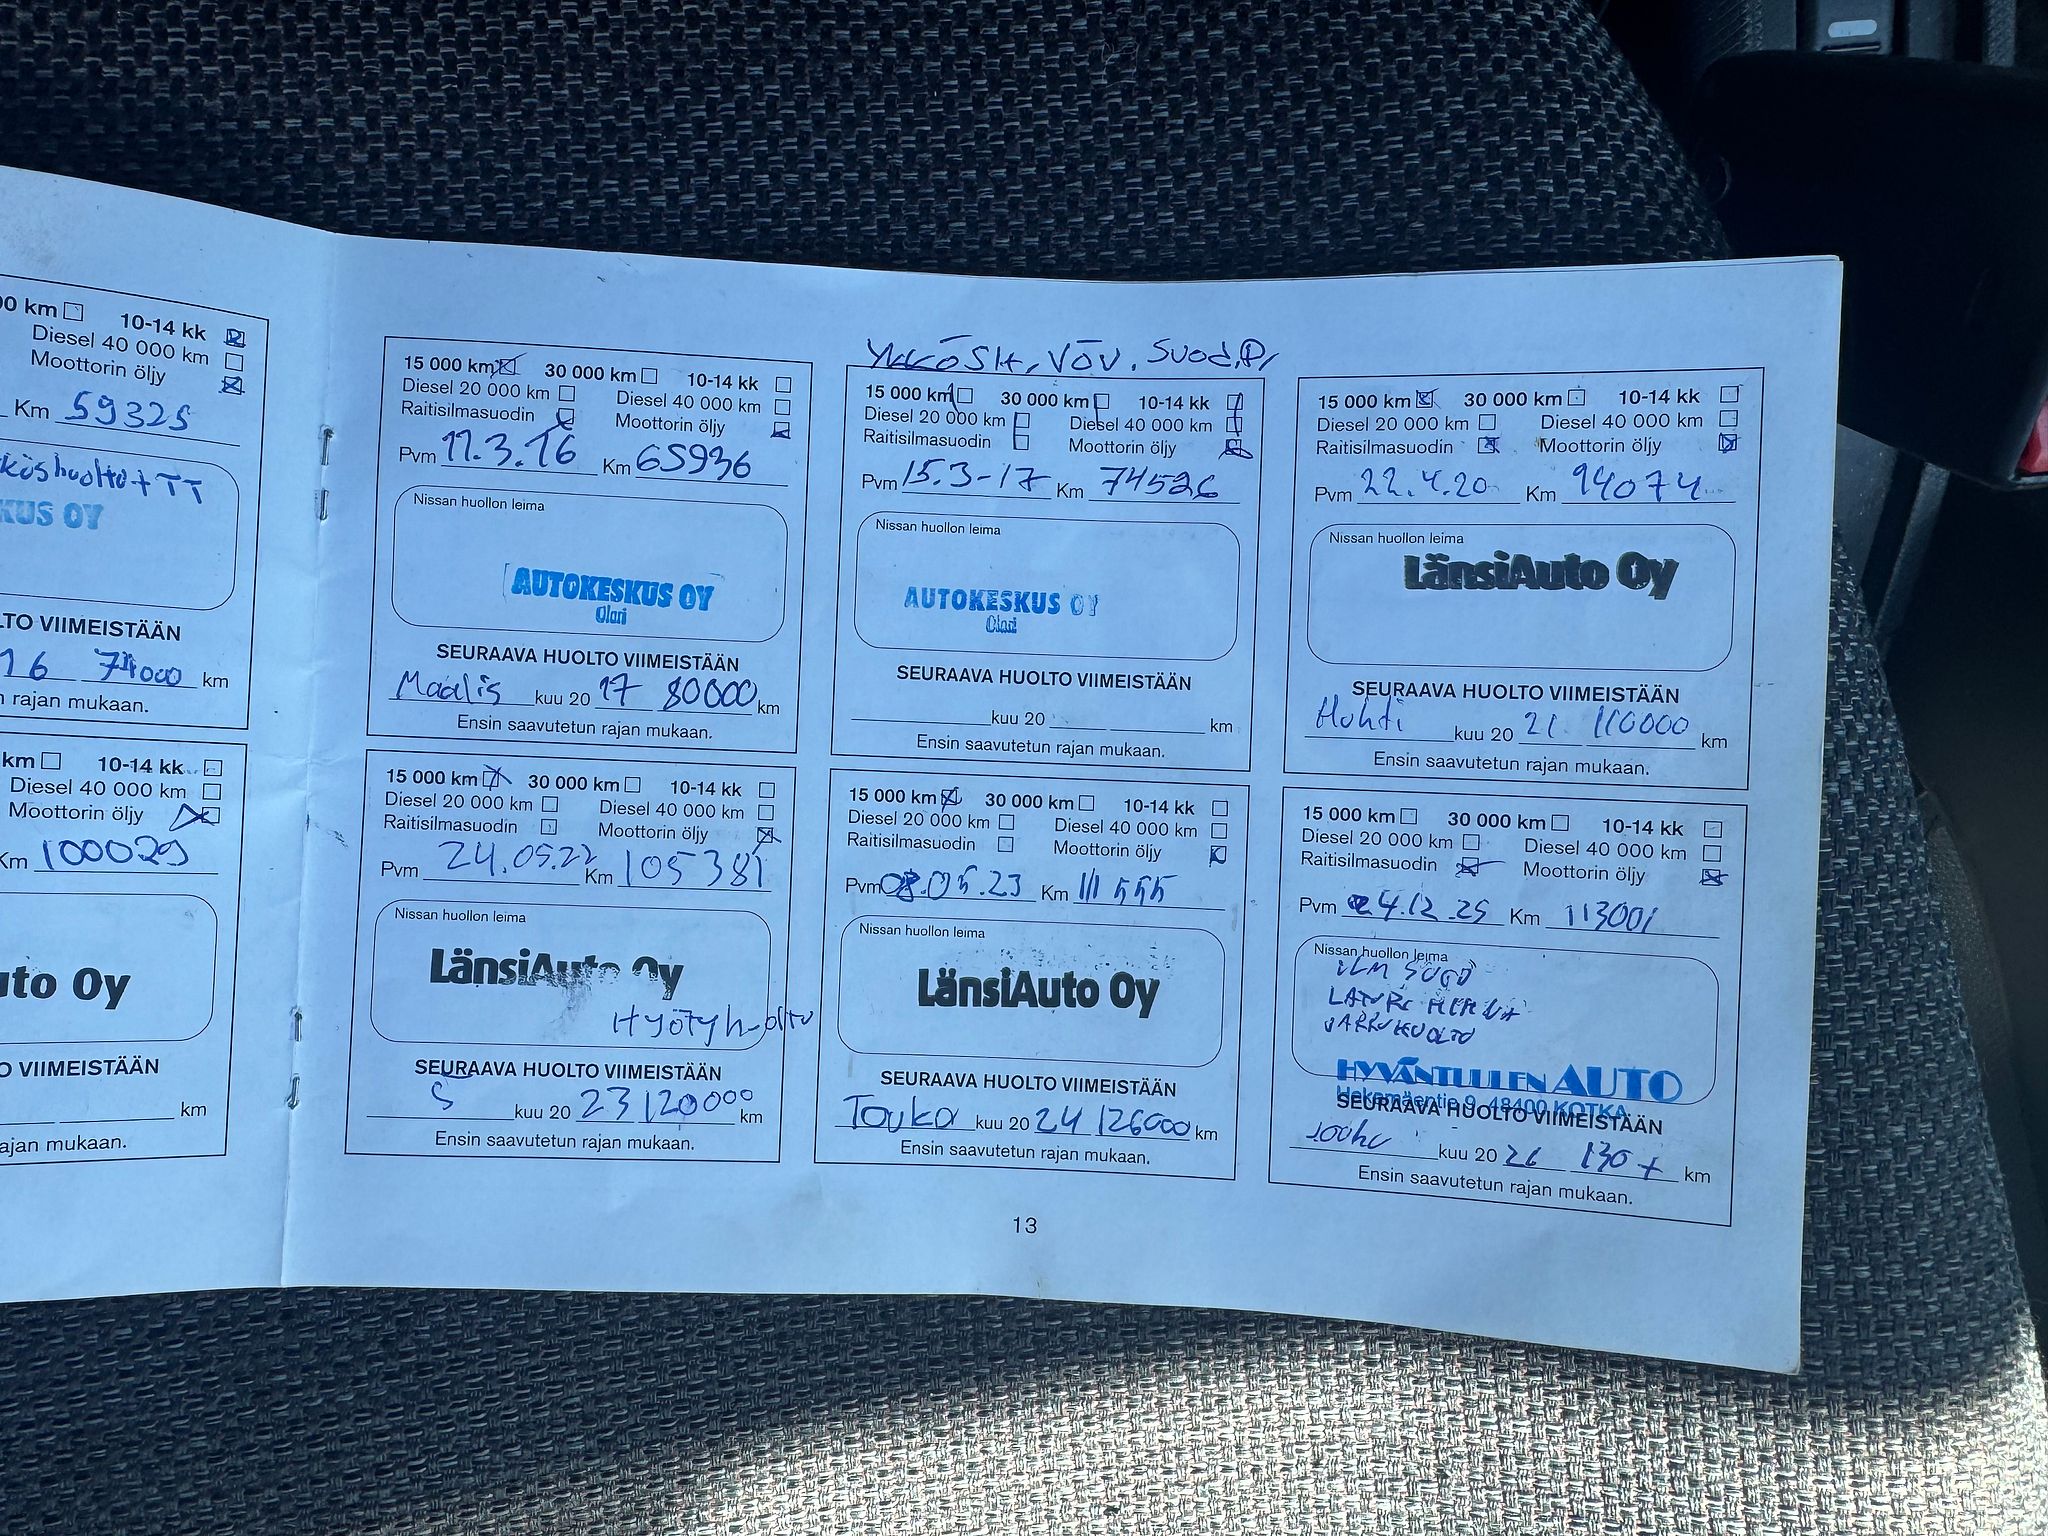 00 km 10-14 kk
Diesel 40 000 km
Moottorin öljy
Km 59325
köshuolto + TT
KUS OY
LTO VIIMEISTÄÄN
16 74000 km
n rajan mukaan.
km 10-14 kk
Diesel 40 000 km
Moottorin öljy
Km 100029
uto Oy
O VIIMEISTÄÄN
km
ajan mukaan.
15 000 km 30 000 km 10-14 kk
Diesel 20 000 km Diesel 40 000 km
Raitisilmasuodin Moottorin öljy
Pvm 11.3.16 Km 65936
Nissan huollon leima
AUTOKESKUS OY
Olari
SEURAAVA HUOLTO VIIMEISTÄÄN
Maalis kuu 20 17 80000 km
Ensin saavutetun rajan mukaan.
YKKÖSH, VÖV. SUOD.
15 000 km 30 000 km 10-14 kk
Diesel 20 000 km Diesel 40 000 km
Raitisilmasuodin Moottorin öljy
Pvm 15.3-17 Km 74526
Nissan huollon leima
AUTOKESKUS OY
Olari
SEURAAVA HUOLTO VIIMEISTÄÄN
kuu 20 km
Ensin saavutetun rajan mukaan.
15 000 km 30 000 km 10-14 kk
Diesel 20 000 km Diesel 40 000 km
Raitisilmasuodin Moottorin öljy
Pvm 22.4.20 Km 94074
Nissan huollon leima
LänsiAuto Oy
SEURAAVA HUOLTO VIIMEISTÄÄN
Huhti kuu 20 21 110000 km
Ensin saavutetun rajan mukaan.
15 000 km 30 000 km 10-14 kk
Diesel 20 000 km Diesel 40 000 km
Raitisilmasuodin Moottorin öljy
Pvm 24.05.22 Km 105381
Nissan huollon leima
LänsiAuto Oy
Hyötyhuolto
SEURAAVA HUOLTO VIIMEISTÄÄN
5 kuu 20 23 120000 km
Ensin saavutetun rajan mukaan.
15 000 km 30 000 km 10-14 kk
Diesel 20 000 km Diesel 40 000 km
Raitisilmasuodin Moottorin öljy
Pvm 08.05.23 Km 111555
Nissan huollon leima
LänsiAuto Oy
SEURAAVA HUOLTO VIIMEISTÄÄN
Touko kuu 20 24 126000 km
Ensin saavutetun rajan mukaan.
15 000 km 30 000 km 10-14 kk
Diesel 20 000 km Diesel 40 000 km
Raitisilmasuodin Moottorin öljy
Pvm 24.12.25 Km 113001
Nissan huollon leima
ILM SUOD
JARRUHUOLTO
HYVÄNTUULEN AUTO
Hakamäentie 9, 48400 KOTKA
SEURAAVA HUOLTO VIIMEISTÄÄN
Joulu kuu 20 26 130 + km
Ensin saavutetun rajan mukaan.
13